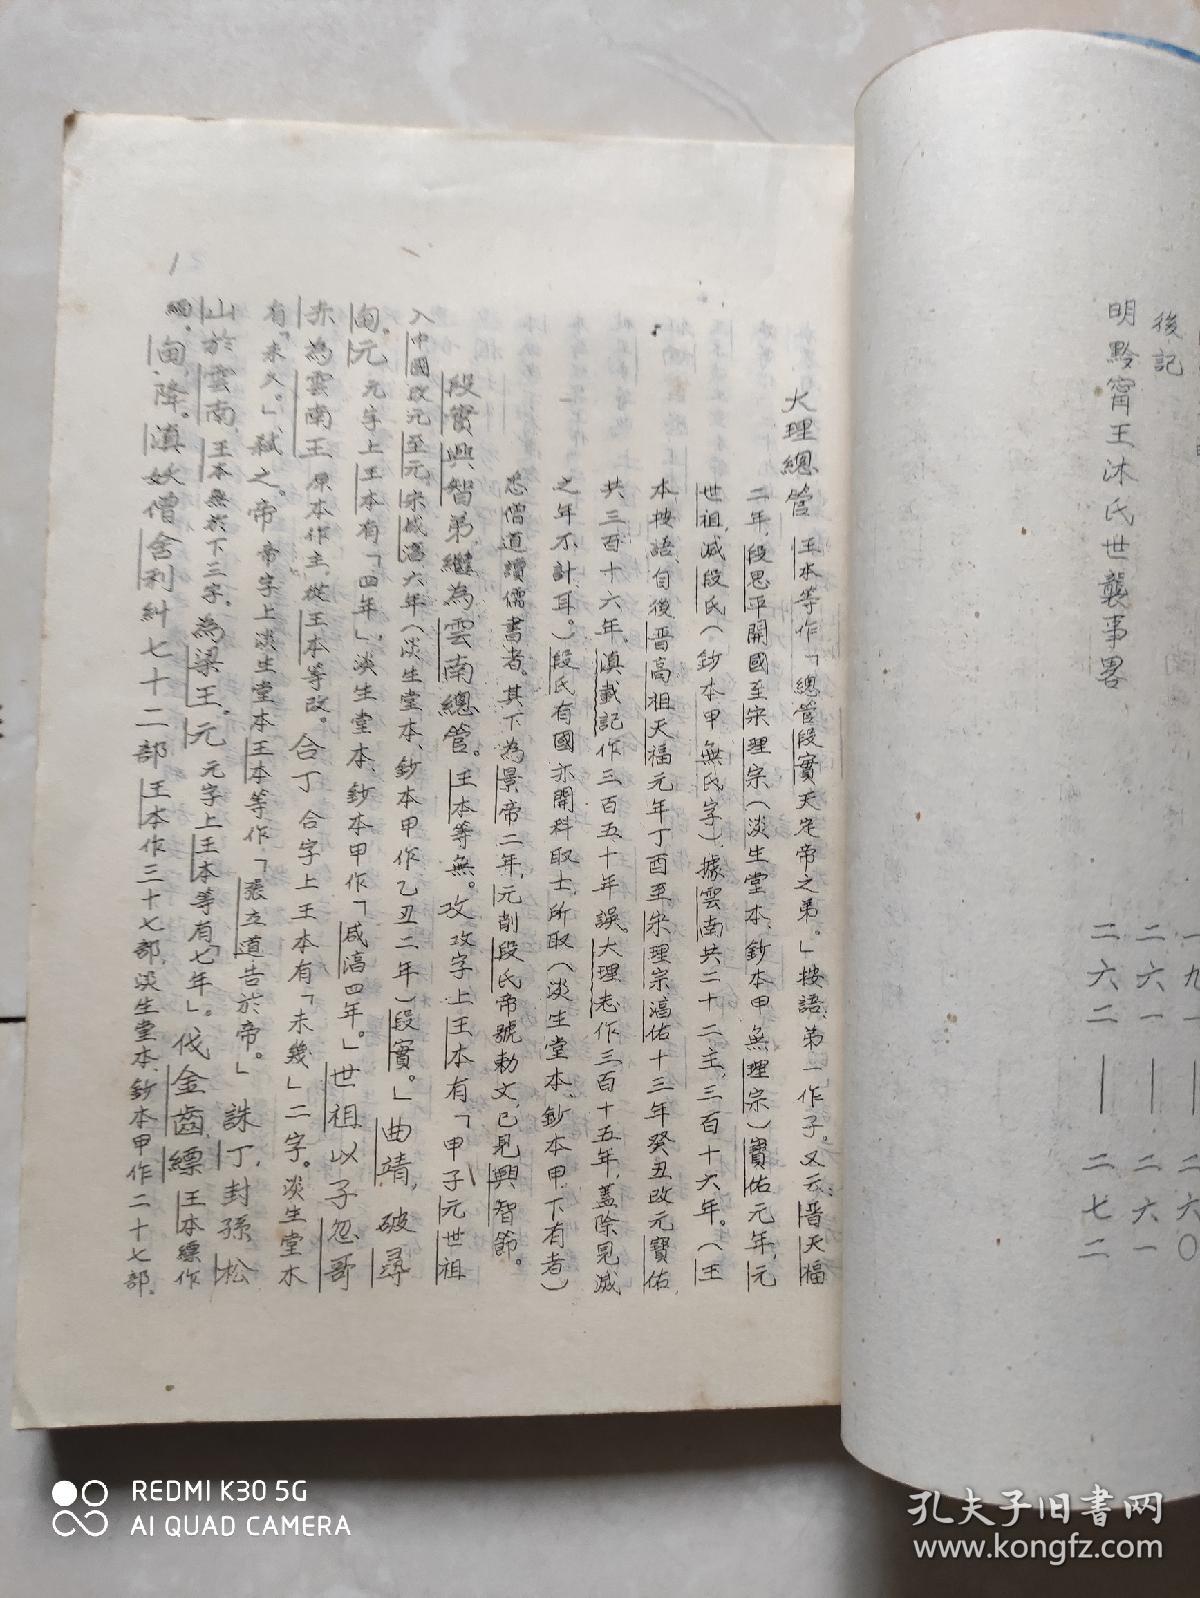 後記
明黔甯王沐氏世襲事畧
一九一——二六〇
二六一——二六一
二六二——二七二
大理總管 王本等作「總管段實天定帝之弟。」按語、弟一作子。又云：晋天福
二年，段思平開國至宋理宗（淡生堂本、鈔本甲無理宗）寶佑元年，元
世祖滅段氏（鈔本甲無氏字）據雲南共二十二主，三百十六年。（王
本按語、自後晋高祖天福元年丁酉至宋理宗湻佑十三年癸丑改元寶佑
共三百十六年，滇載記作三百五十年誤，大理志作三百十五年，蓋除見滅
之年不計耳。）段氏有國亦開科取士，所取（淡生堂本、鈔本甲，下有者）
悉僧道讀儒書者。其下為景帝二年，元削段氏帝號勅文，已見興智節。
段實興智弟，繼為雲南總管。王本等無。攻 攻字上王本有「甲子元世祖
入中國改元至元，宋咸湻六年（淡生堂本、鈔本甲作乙丑二年）段實。」曲靖，破尋
甸。元 元字上王本有「四年」，淡生堂本、鈔本甲作「咸湻四年。」世祖以子忽哥
赤為雲南王 原本作主，從王本等改。合丁 合字上王本有「未幾」二字。淡生堂本
有「未久。」弒之。帝 帝字上淡生堂本王本等作「張立道告於帝。」誅丁，封孫松
山於雲南，王本無於下三字。為梁王。元 元字上王本等有「七年」。伐金齒、縹 王本縹作
緬。甸，降。滇妖僧舍利糾七十二部 王本作三十七部，淡生堂本、鈔本甲作二十七部，
1
REDMI K30 5G
AI QUAD CAMERA
孔夫子旧书网
www.kongfz.com